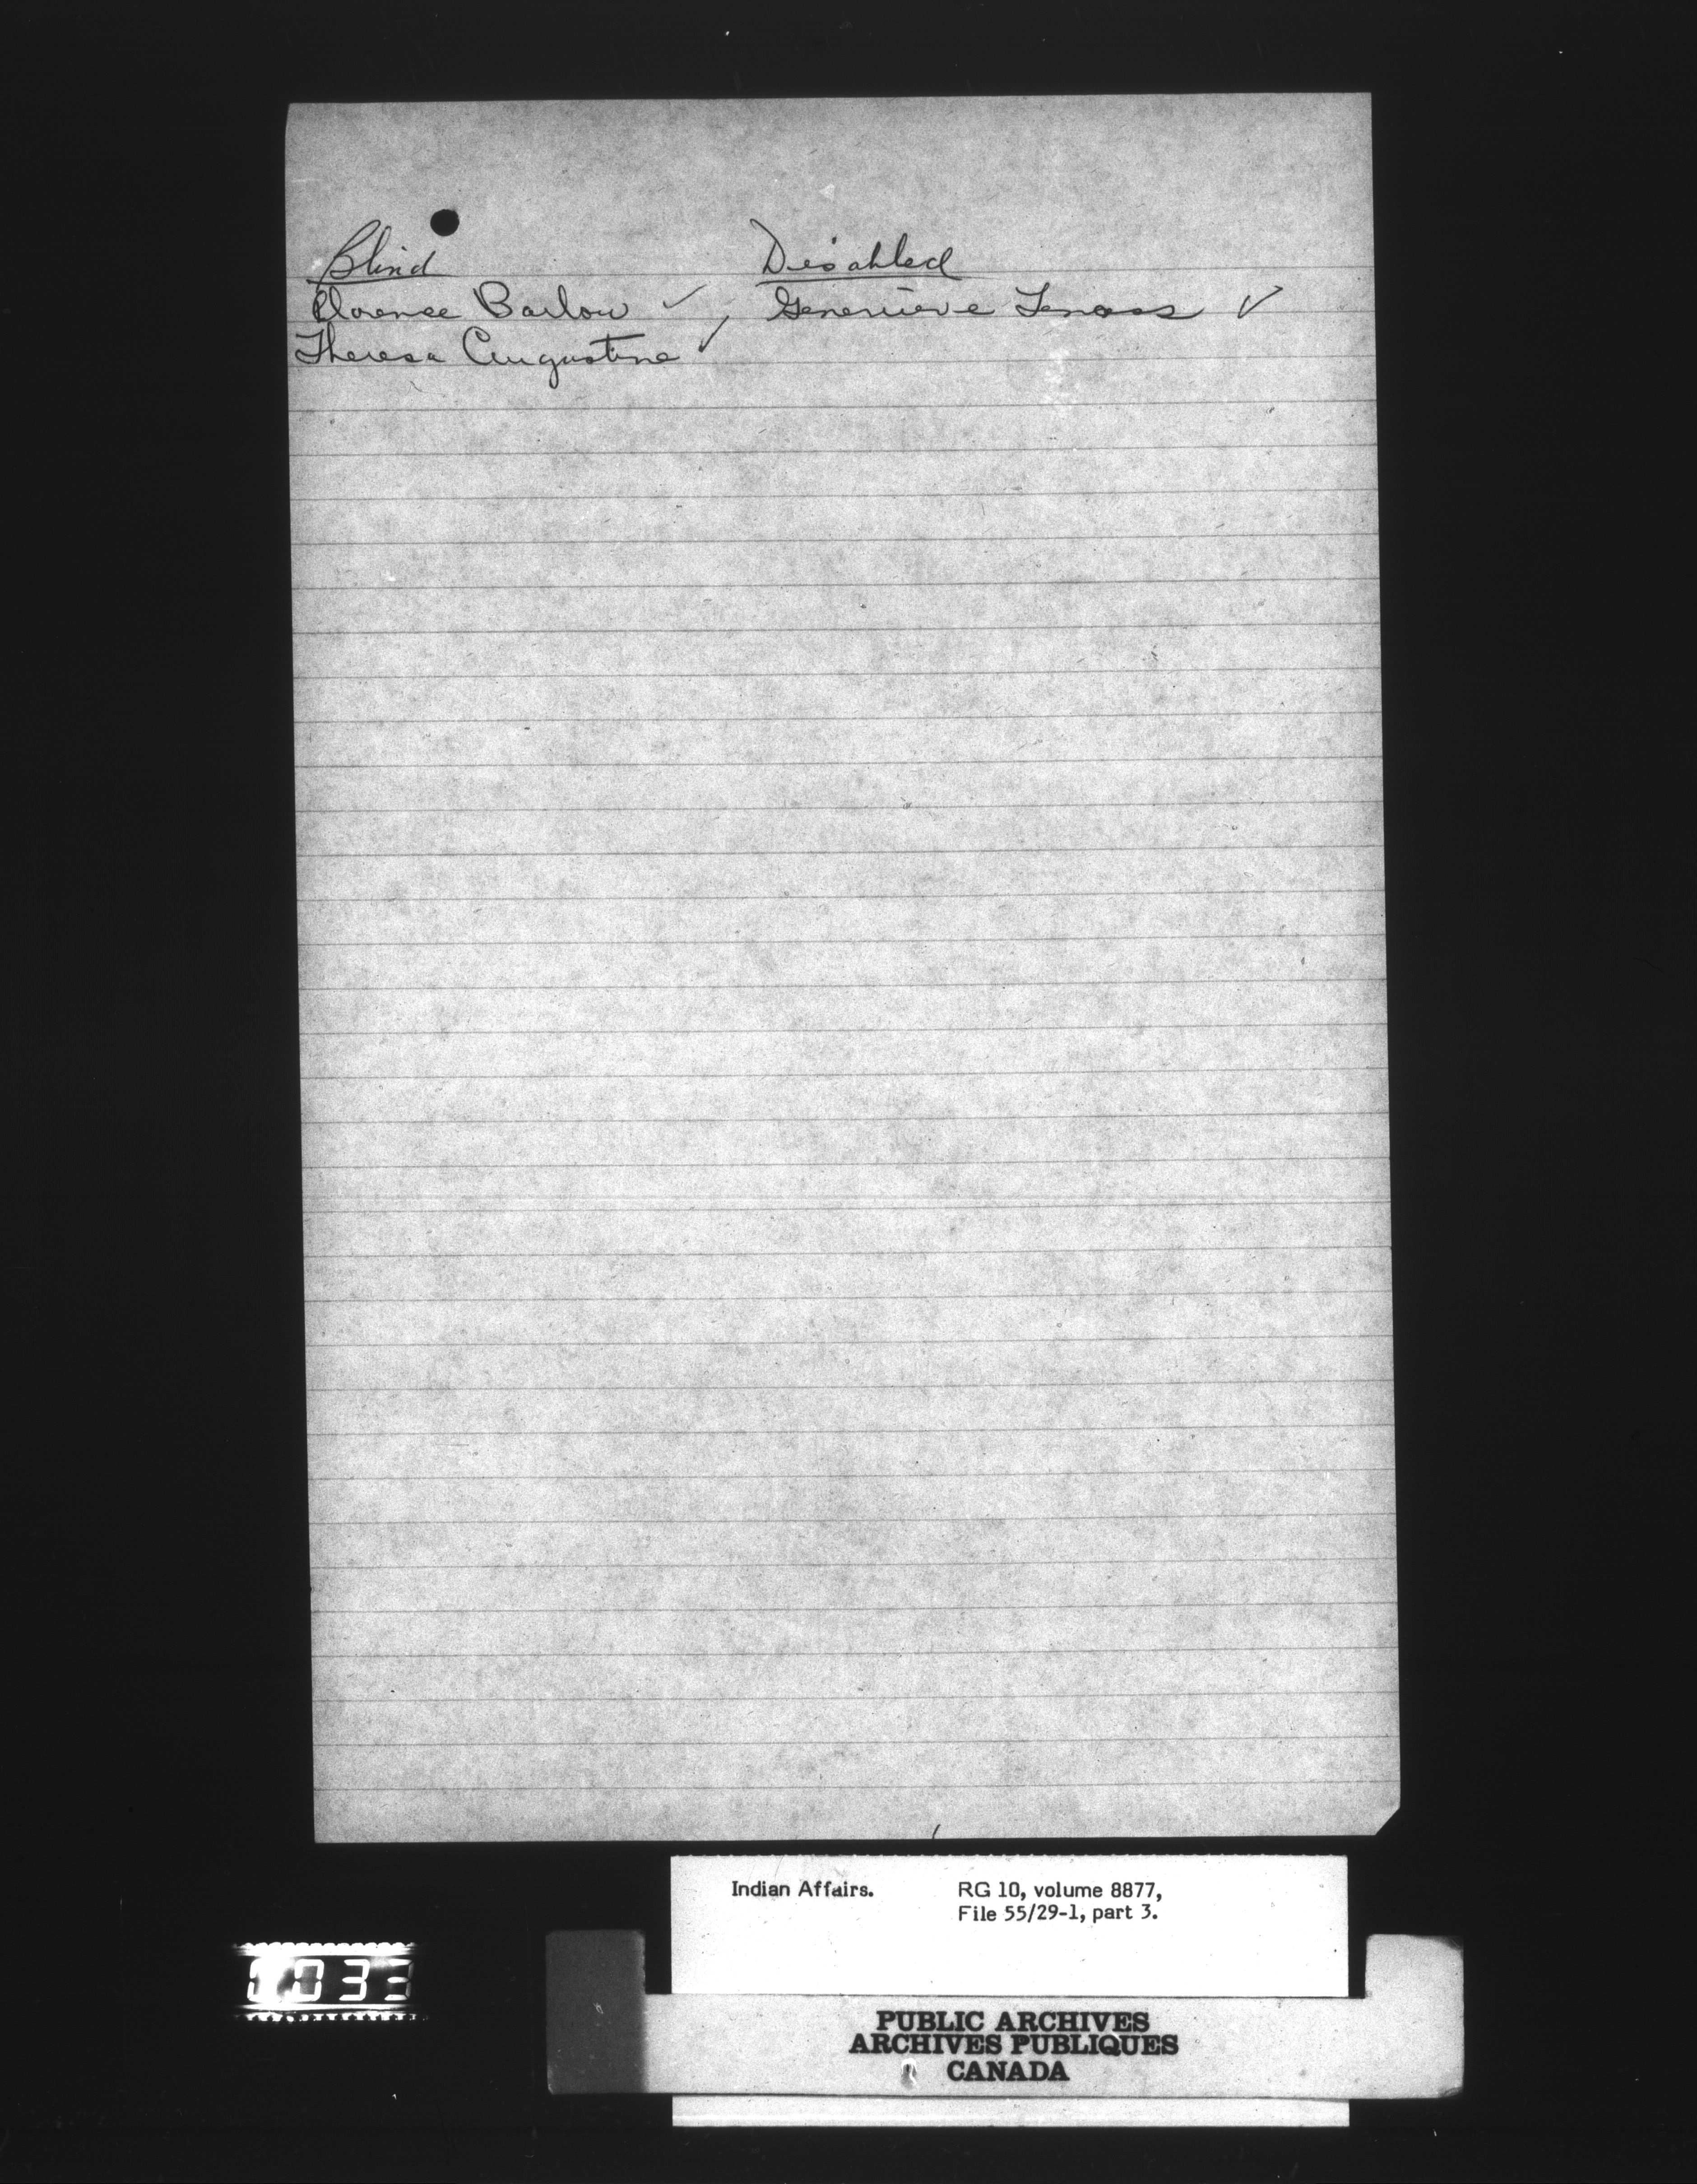 Blind Disabled
Clorence Barlow ✓ Genevieve Tenass ✓
Theresa Augustine ✓
Indian Affairs. RG 10, volume 8877,
File 55/29-1, part 3.
0033
PUBLIC ARCHIVES
ARCHIVES PUBLIQUES
CANADA